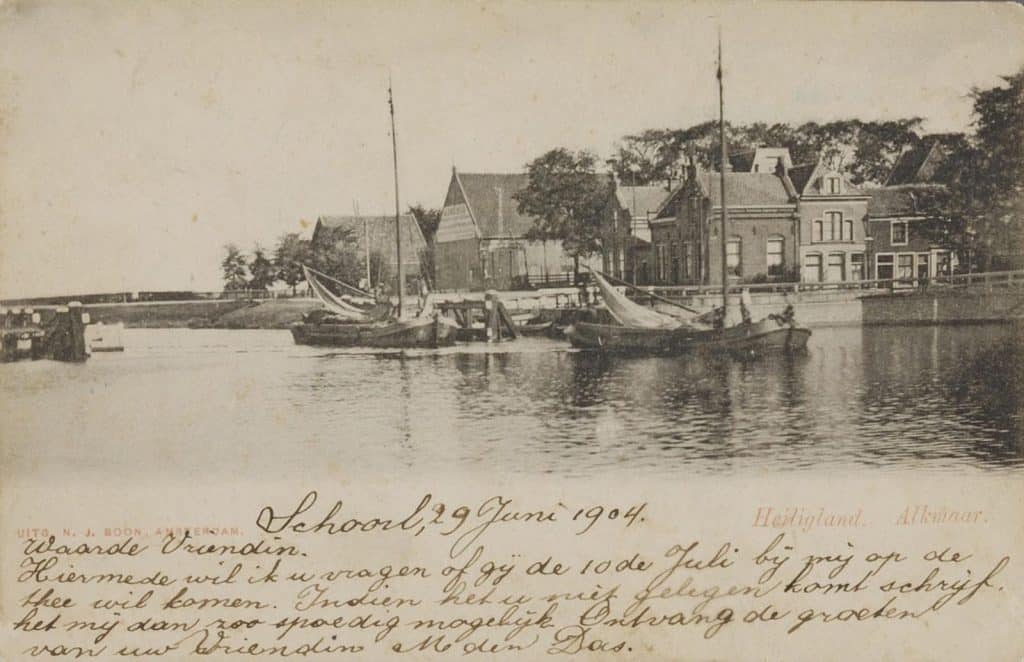 Schoorl, 29 Juni 1904.
Heiligland. Alkmaar.
UITG. N. J. BOON, AMSTERDAM.
Waarde Vriendin.
Hiermede wil ik u vragen of gÿ de 10de Juli bÿ mÿ op de
thee wil komen. Indien het u niet gelegen komt schrÿf
het mÿ dan zoo spoedig mogelÿk. Ontvang de groeten
van uw Vriendin M den Das.